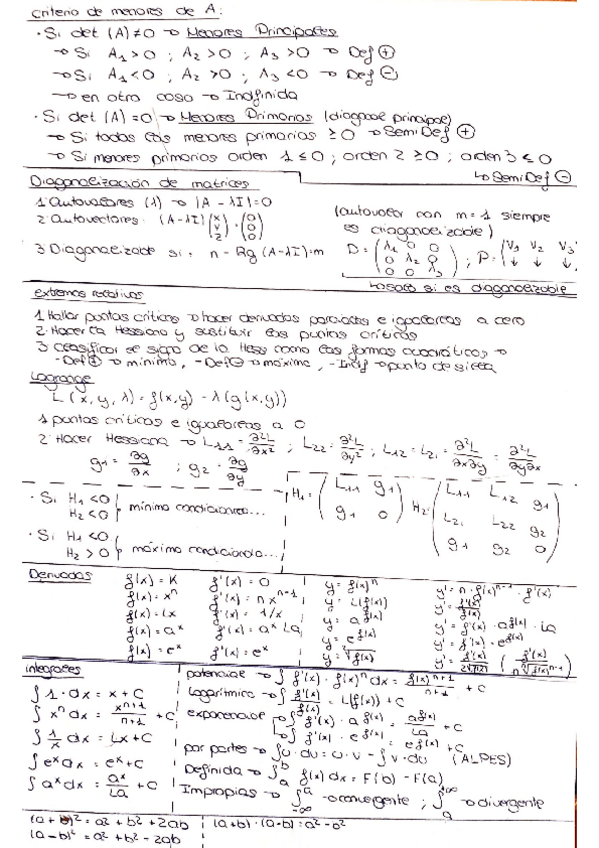 criterio de menores de A:
· Si det (A) ≠ 0 → Menores Principales
→ Si A1 > 0 ; A2 > 0 ; A3 > 0 → Def ⊕
→ Si A1 < 0 ; A2 > 0 ; A3 < 0 → Def ⊖
→ en otro caso → Indfinida
· Si det (A) = 0 → Menores Primarios (diagonal principal)
→ Si todos los menores primarios ≥ 0 → SemiDef ⊕
→ Si menores primarios orden 1 ≤ 0 ; orden 2 ≥ 0 ; orden 3 ≤ 0
↳ SemiDef ⊖
Diagonalización de matrices
1. Autovalores (λ) → |A - λI| = 0
2. Autovectores: (A - λI) (x y z) · (0 0 0)
3. Diagonalizable si: n - Rg (A - λI) = m
(autovalor con m = 1 siempre
es diagonalizable)
D = (λ1 0 0 / 0 λ2 0 / 0 0 λ3) ; P = (V1 V2 V3 ↓ ↓ ↓
↳ solo si es diagonalizable
extremos relativos
1. Hallar puntos críticos → hacer derivadas parciales e igualarlas a cero
2. Hacer la Hessiana y sustituir los puntos críticos
3. clasificar el signo de la Hess como las formas cuadráticas →
- Def ⊕ → mínimo, - Def ⊖ → máximo, - Indf → punto de silla
Lagrange
L (x, y, λ) = f(x,y) - λ(g(x,y))
1. puntos críticos e igualarlas a 0
2. Hacer Hessiana → L11 = ∂²L/∂x² ; L22 = ∂²L/∂y² ; L12 = L21 = ∂²L/∂x∂y = ∂²L/∂y∂x
g1 = ∂g/∂x ; g2 = ∂g/∂y
· Si H1 < 0 H2 < 0 } mínimo condicionado...
· Si H1 < 0 H2 > 0 } máximo condicionado...
H1 = (L11 g1 / g1 0) H2 (L11 L12 g1 / L21 L22 g2 / g1 g2 0)
Derivadas
f(x) = K f'(x) = 0 y = f(x)^n y' = n · f(x)^(n-1) · f'(x)
f(x) = x^n f'(x) = n x^(n-1) y = L(f(x)) y' = f'(x)/f(x)
f(x) = Lx f'(x) = 1/x y = a^f(x) y' = f'(x) · a^f(x) · La
f(x) = a^x f'(x) = a^x La y = e^f(x) y' = f'(x) · e^f(x)
f(x) = e^x f'(x) = e^x y = √f(x) y' = f'(x)/2√f(x) (f'(x)/n ⁿ√f(x)^(n-1))
integrales
∫ 1 · dx = x + C
∫ x^n dx = x^(n+1)/(n+1) + C
∫ 1/x dx = Lx + C
∫ e^x dx = e^x + C
∫ a^x dx = a^x/La + C
potencial → ∫ f'(x) · f(x)^n dx = f(x)^(n+1)/(n+1) + C
Logarítmica → ∫ f'(x)/f(x) = L(f(x)) + C
exponencial → ∫ f'(x) · a^f(x) = a^f(x)/La + C
↳ ∫ f'(x) · e^f(x) = e^f(x) + C
por partes → ∫ u · dv = u · v - ∫ v · du (ALPES)
Definida → ∫ₐᵇ f(x) dx = F(b) - F(a)
Impropias → ∫ a -∞ → convergente ; ∫ +∞ a → divergente
(a + b)² = a² + b² + 2ab
(a - b)² = a² + b² - 2ab
(a+b) · (a-b) = a² - b²